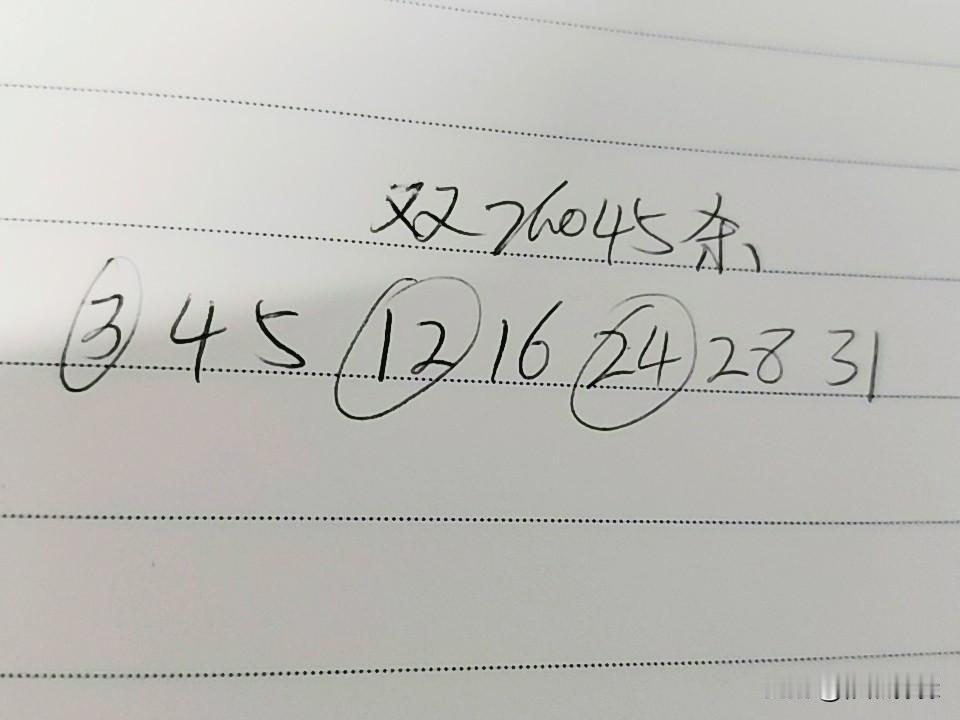 双26045杀
3 4 5 12 16 24 28 31